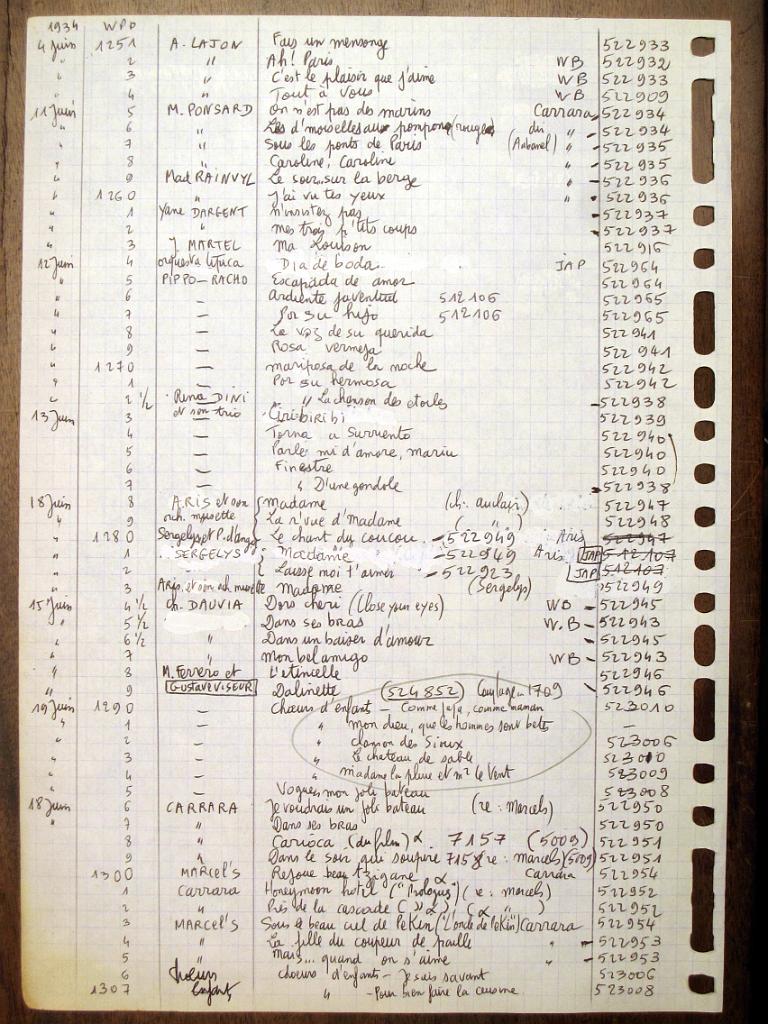 1934 WPO
4 Juin 1251 A. LAJON Fais un mensonge 522933
" 2 " Ah! Paris WB 522932
" 3 " C'est le plaisir que j'aime WB 522933
" 4 " Tout à vous WB 522909
11 Juin 5 M. PONSARD On n'est pas des marins Carrara 522934
" 6 " Les d'moiselles aux pompons (rouges) dir " 522934
" 7 " Sous les ponts de Paris " 522935
" 8 " Caroline, Caroline " 522935
" 9 Mad RAINVYL Le soir.. sur la berge " - 522936
" 1260 " J'ai vu tes yeux " - 522936
" 1 Yane DARGENT n'insistez pas - 522937
" 2 " mes trois p'tits coups - 522937
" 3 J. MARTEL Ma Louison 522916
12 Juin 4 orquesta tipica Dia de boda JAP 522964
" 5 PIPPO-RACHO Escapada de amor 522964
" 6 — Ardiente juventud 512106 522965
" 7 — Por su hijo 512106 522965
" 8 — La voz de su querida 522941
" 9 — Rosa vermeja 522941
" 1270 — mariposa de la noche 522942
" 1 — Por su hermosa 522942
" 2 1/2 Rina DINI " La chanson des etoiles - 522938
13 Juin 3 et son trio Ciribiribi 522939
4 — Torna a Surriento 522940
5 — Parle mi d'amore, mariu 522940
6 — Finestre 522940
7 — " D'une gondole - 522938
18 Juin 8 ARIS et son madame 522947
" 9 orch. musette La r'vue d'Madame ( " ) 522948
" 1280 Sergelys et P. d'Anjou Le chant du coucou - 522949 Aris 522947
" 1 SERGELYS " Madame - 522949 Aris JAP 512107
" 2 — Laisse moi t'aimer - 522923 JAP 512107
" 3 Aris, et son orch. musette Madame (Sergelys) 522949
15 Juin 4 1/2 Ch. DAUVIA Dors cheri (Close your eyes) WB - 522945
" 5 1/2 Dans ses bras W.B - 522943
" 6 1/2 " Dans un baiser d'amour - 522945
" 7 " Mon bel amigo WB - 522943
" 8 M. Ferrero et L'etincelle 522946
" 9 GUSTAVE VISEUR Dalinette (524852) Couplage 1709 - 522946
19 Juin 1290 — chœurs d'enfant - Comme papa, comme maman 523010
" 1 — " mon dieu, que les hommes sont betes —
" 2 — " clairon des Sioux 523006
" 3 — " Le chateau de sable 523010
" 4 — " madame la pluie et mr le vent 523009
" 5 — Vogues mon joli bateau 523008
18 Juin 6 CARRARA Je voudrais un joli bateau (re: marcels) 522950
" 7 " Dans ses bras 522950
8 " Carioca (du film) α. 7157 (5009) 522951
9 " Dans le soir qui soupire 7158 (re: marcels) (5009) 522951
1300 MARCEL'S Rejoue beau tzigane α Carrara 522954
1 Carrara Honeymoon hotel ("Prologues") (re: marcels) 522952
2 " Près de la cascade ( " α ) (α " ) 522952
3 MARCEL'S Sous le beau ciel de Pekin ("L'onde de Pekin") Carrara 522954
4 " La fille du coupeur de paille " - 522953
5 " Mais... quand on s'aime " - 522953
6 chœurs chœurs d'enfants - Je suis savant 523006
1307 Enfants " - Pour bien faire la cuisine 523008